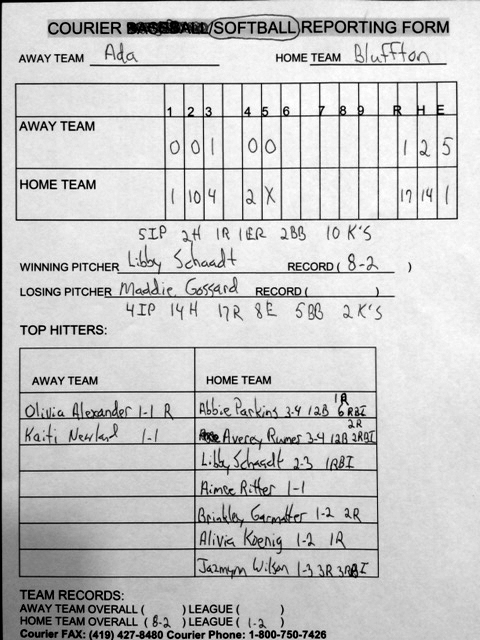 COURIER BASEBALL/SOFTBALL REPORTING FORM
AWAY TEAM Ada HOME TEAM Bluffton
1 2 3 4 5 6 7 8 9 R H E
AWAY TEAM 0 0 1 0 0 1 2 5
HOME TEAM 1 10 4 2 X 17 14 1
5IP 2H 1R 1ER 2BB 10 K'S
WINNING PITCHER Libby Schaadt RECORD ( 8-2 )
LOSING PITCHER Maddie Gossard RECORD ( )
4IP 14H 17R 8E 5BB 2 K'S
TOP HITTERS:
AWAY TEAM HOME TEAM
Olivia Alexander 1-1 R Abbie Parkins 3-4 12B 1R 6RBI
Kaiti Newland 1-1 Averey Rumer 3-4 12B 2R 2RBI
Libby Schaadt 2-3 1RBI
Aimee Ritter 1-1
Brinkley Garmatter 1-2 2R
Alivia Koenig 1-2 1R
Jazmyn Wilson 1-3 3R 3RBI
TEAM RECORDS:
AWAY TEAM OVERALL ( ) LEAGUE ( )
HOME TEAM OVERALL ( 8-2 ) LEAGUE ( 1-2 )
Courier FAX: (419) 427-8480 Courier Phone: 1-800-750-7426